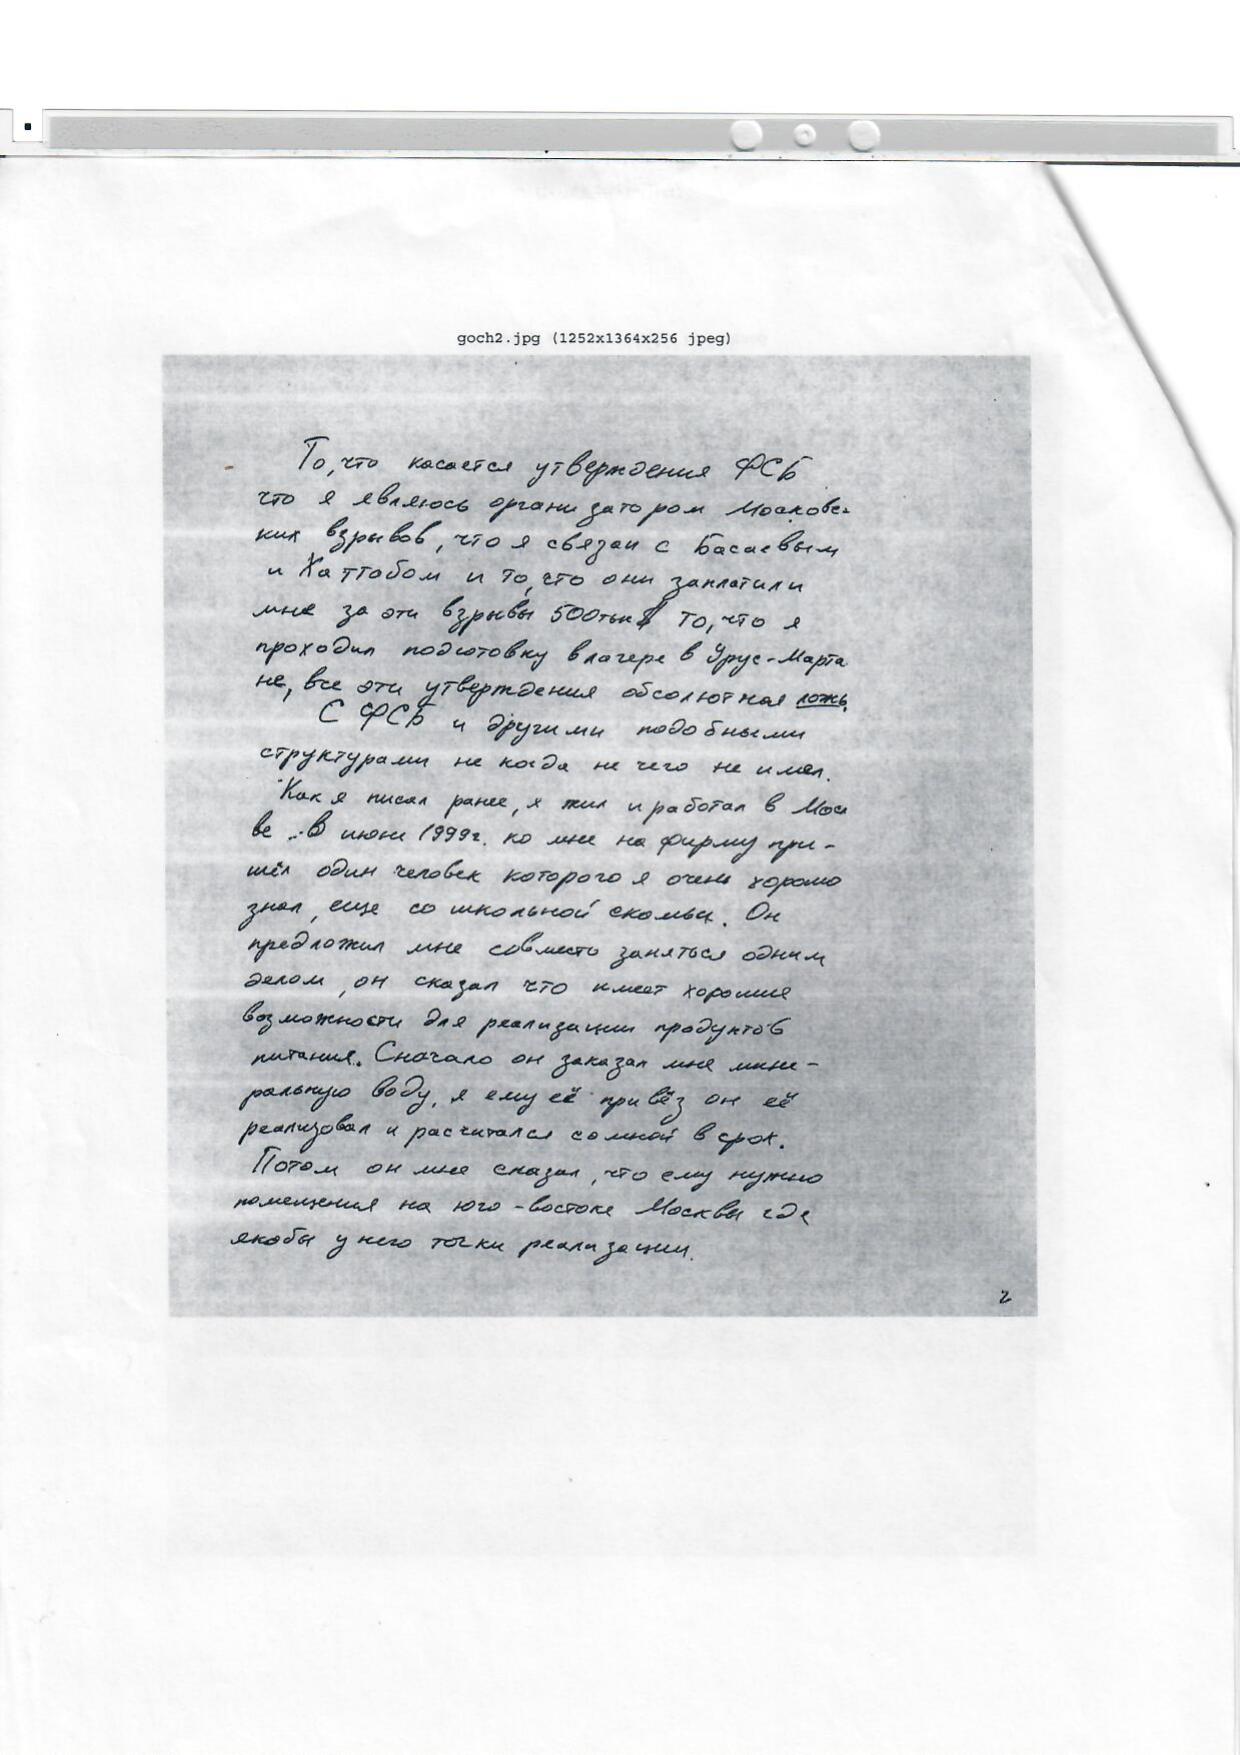 goch2.jpg (1252x1364x256 jpeg)
То, что касается утверждения ФСБ
что я являюсь организатором Московс-
ких взрывов, что я связан с Басаевым
и Хаттобом и то, что они заплатили
мне за эти взрывы 500тыс$ то, что я
проходил подготовку в лагере в Урус-Марта
не, все эти утверждения обсолютная ложь.
С ФСБ и другими подобными
структурами не когда не чего не имел.
Как я писал ранее, я жил и работал в Моск
ве. В июне 1999г. ко мне на фирму при-
шёл один человек которого я очень хорошо
знал, еще со школьной скамьи. Он
предложил мне совместо заняться одним
делом, он сказал что имеет хорошие
возможности для реализации продуктов
питания. Сначало он заказал мне мине-
ральную воду, я ему её привёз он её
реализовал и расчитался со мной в срок.
Потом он мне сказал, что ему нужно
помещения на юго-востоке Москвы где
якобы у него точки реализации.
2